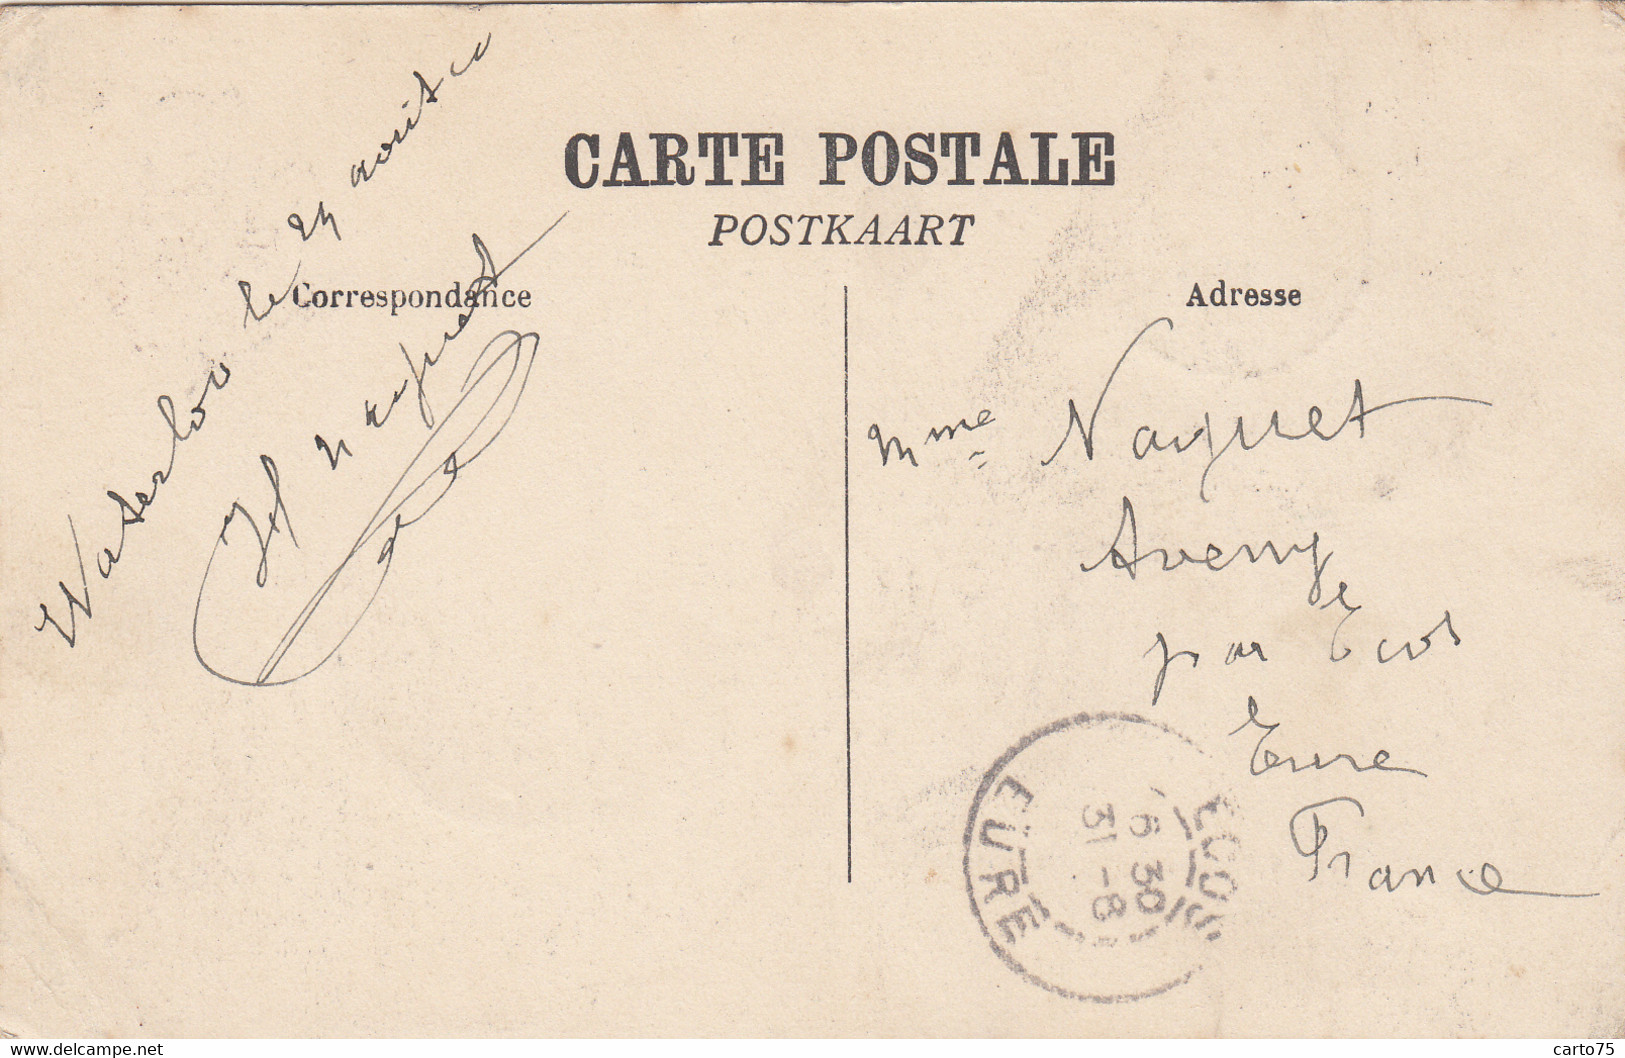 CARTE POSTALE
POSTKAART
Correspondance
Adresse
Waterloo le 29 août
H Naquet
Mme Naquet
Aveny
par Ecos
Eure
France
ECOS
6 30
31 - 8
EURE
www.delcampe.net
carto75